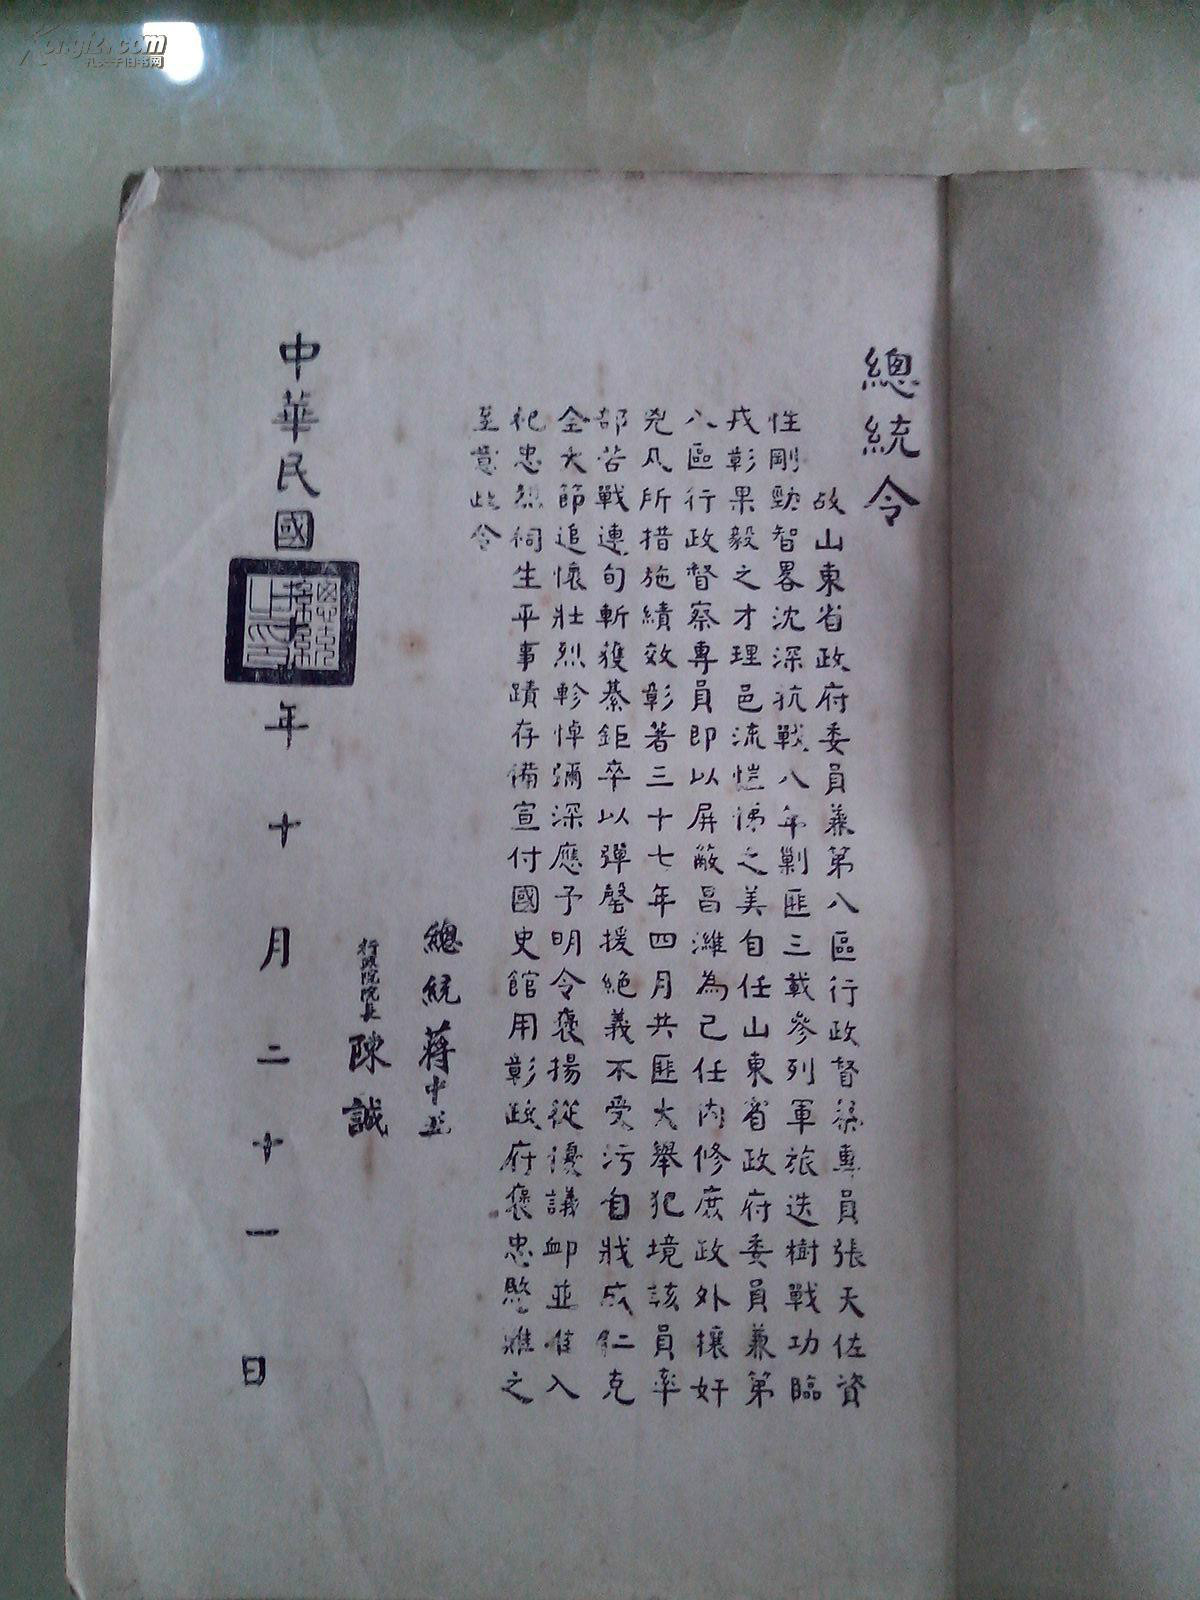 總統令
故山東省政府委員兼第八區行政督察專員張天佐資
性剛勁智畧沈深抗戰八年剿匪三載參列軍旅迭樹戰功臨
戎彰果毅之才理邑流愷悌之美自任山東省政府委員兼第
八區行政督察專員即以屏蔽昌濰為己任內修庶政外攘奸
兇凡所措施績效彰著三十七年四月共匪大舉犯境該員率
部苦戰連旬斬獲綦鉅卒以彈罄援絕義不受污自戕成仁克
全大節追懷壯烈軫悼彌深應予明令褒揚從優議卹並准入
祀忠烈祠生平事蹟存備宣付國史館用彰政府褒忠愍難之
至意此令
總統蔣中正
行政院院長陳誠
中華民國 十年十月二十一日
Kongfz.com
孔夫子旧书网